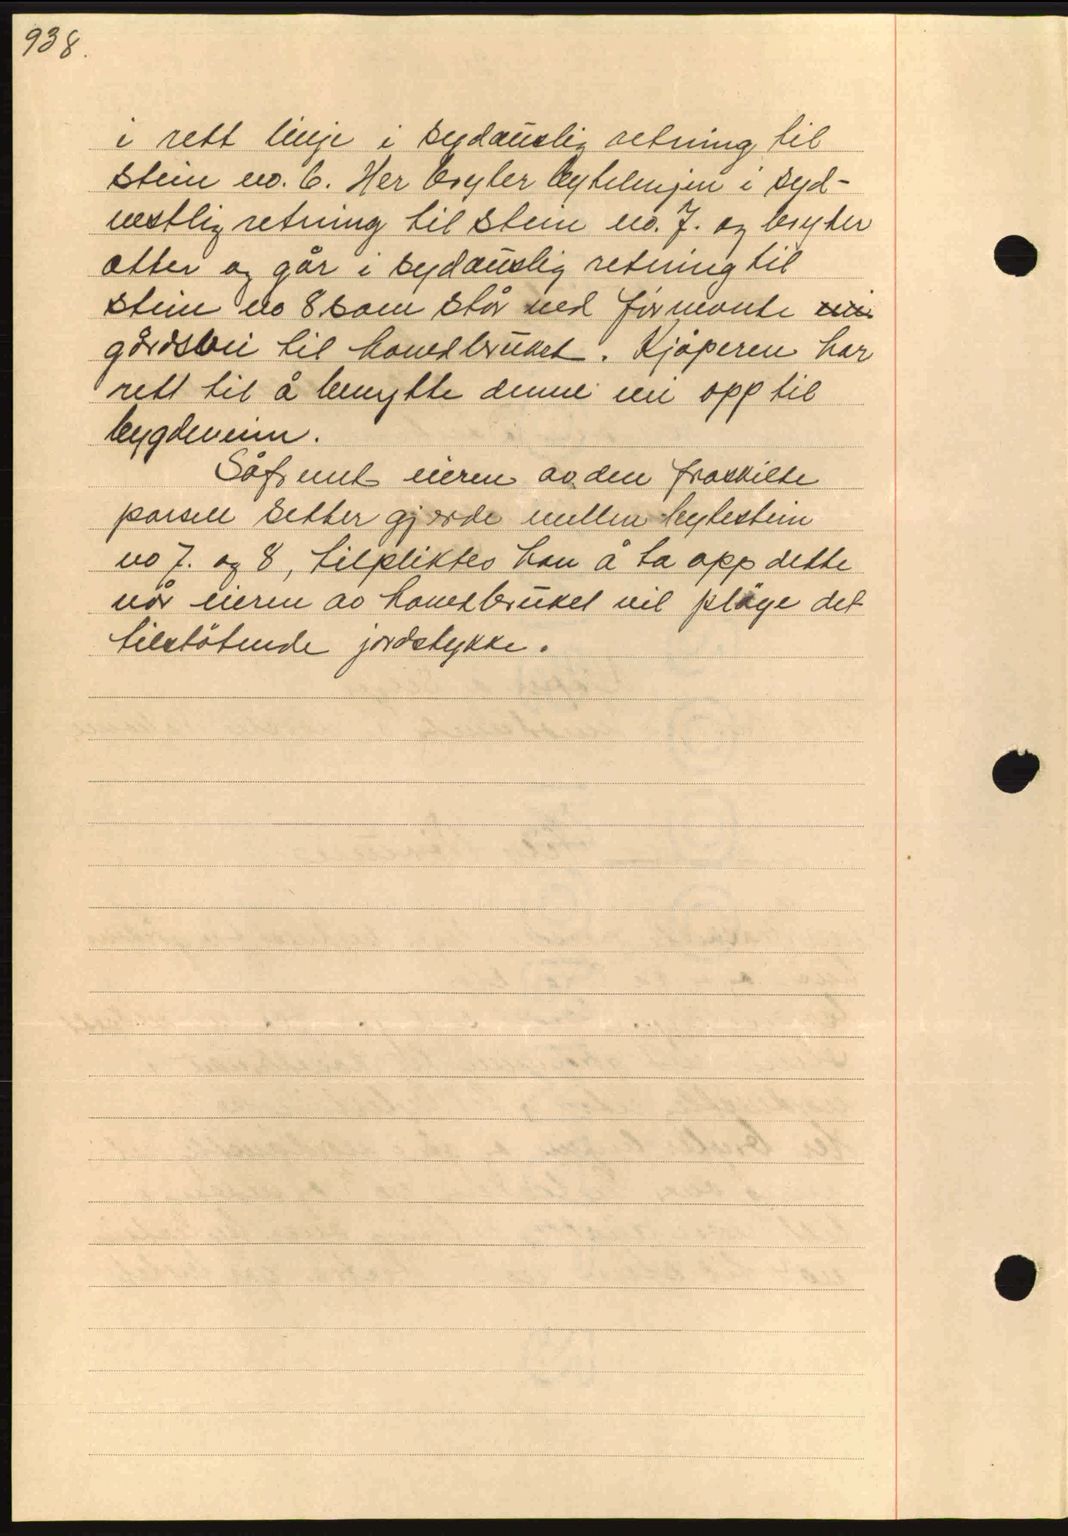 938.
i rett linje i sydaustlig retning til
stein no. 6. Her bryter bytelinjen i syd-
vestlig retning til stein no. 7. og bryter
atter og går i sydaustlig retning til
stein no 8 som står ved før nevnte vei
gårdsvei til hovedbruket. Kjøperen har
rett til å benytte denne vei opp til
bygdeveien.
Såfremt eieren av den fraskilte
parsell setter gjerde mellem bytestein
no 7. og 8, tilpliktes han å ta opp dette
når eieren av hovedbruket vil pløye det
tilstøtende jordstykke.